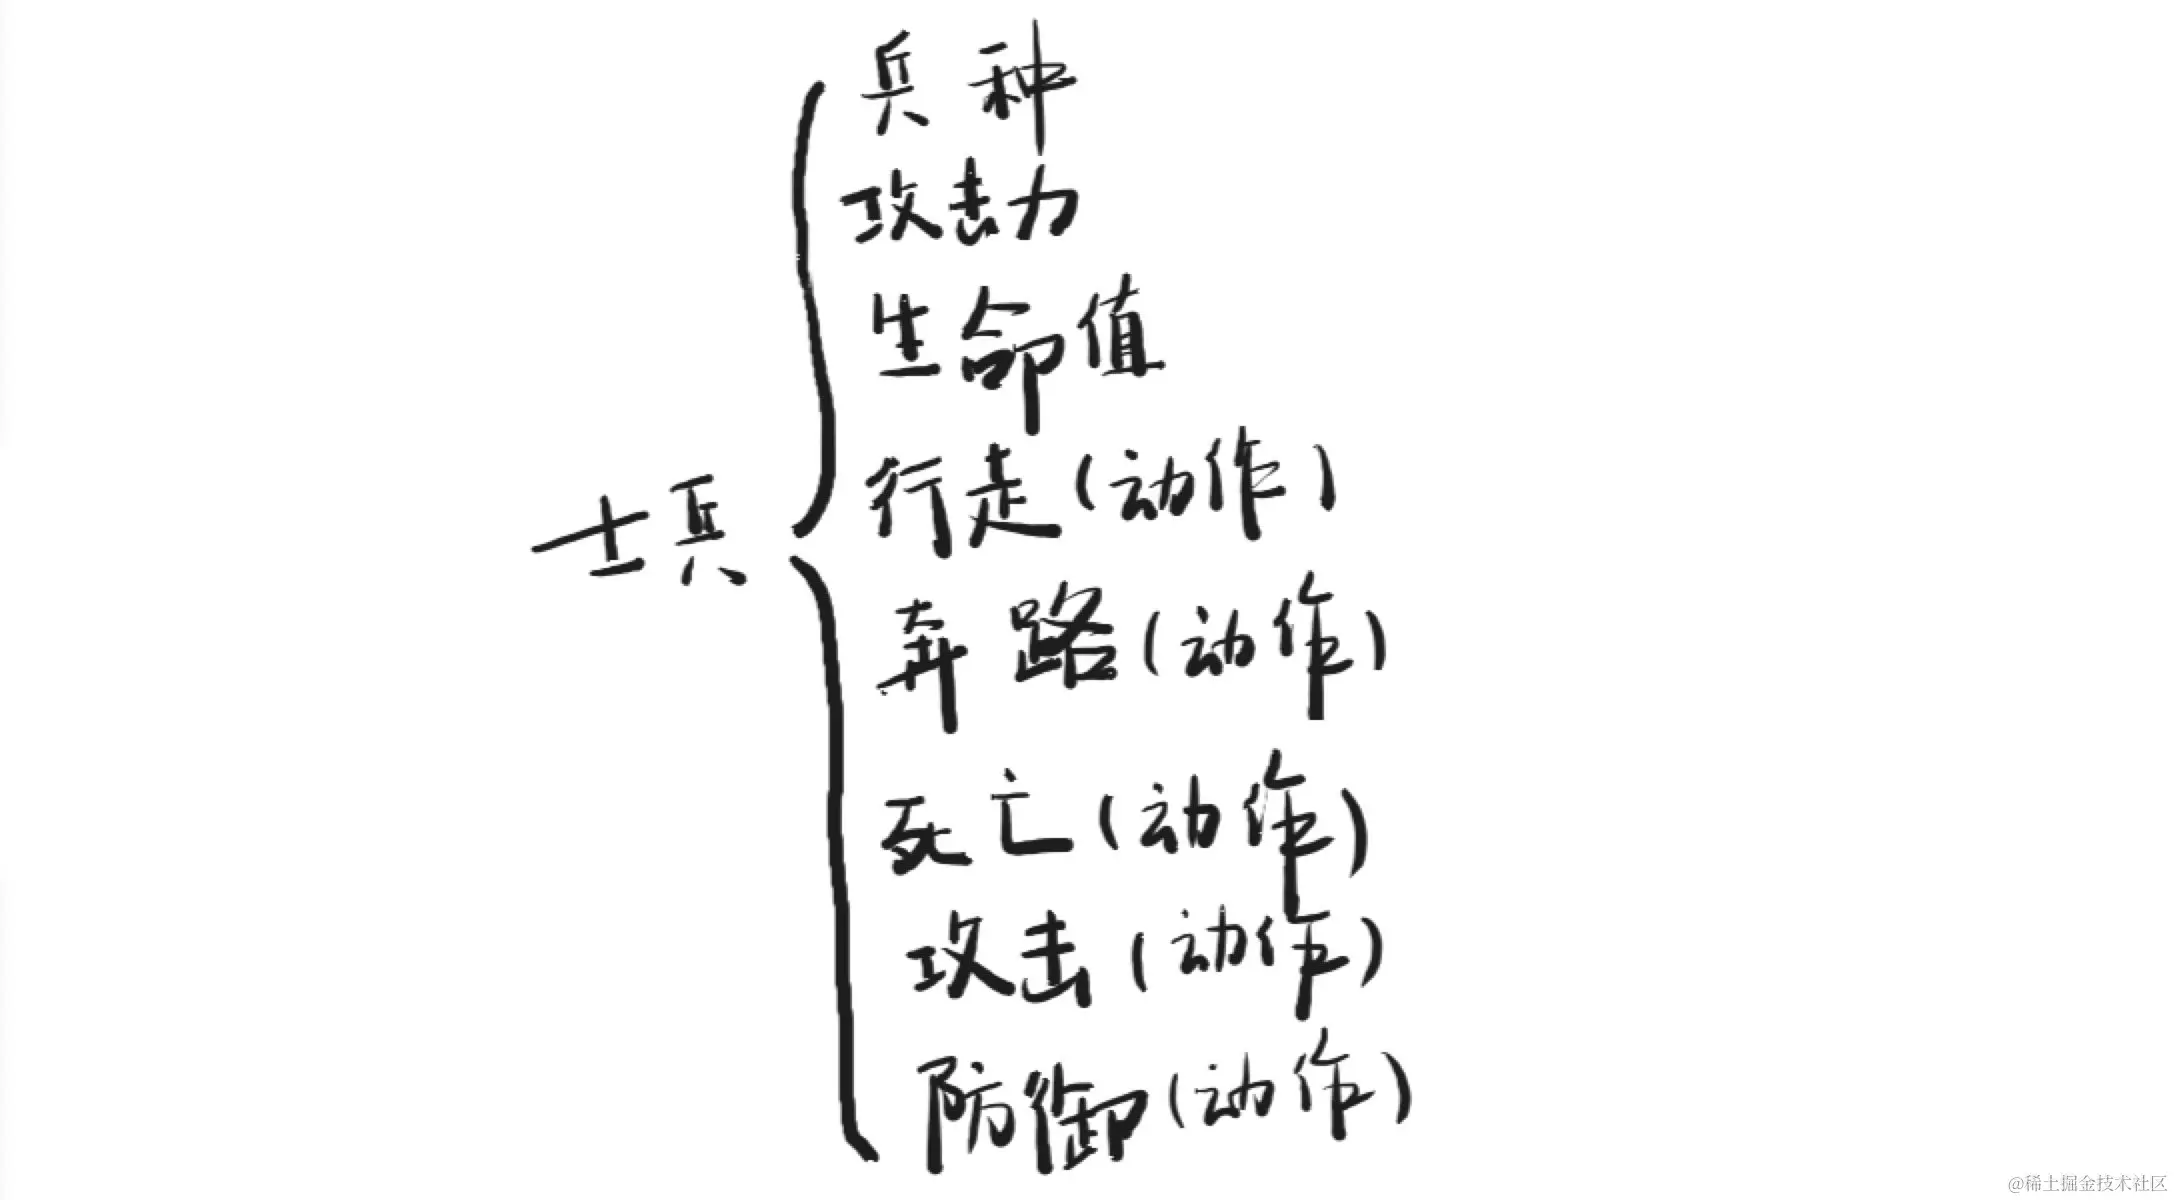 兵种
攻击力
生命值
行走(动作)
士兵
奔路(动作)
死亡(动作)
攻击(动作)
防御(动作)
@稀土掘金技术社区